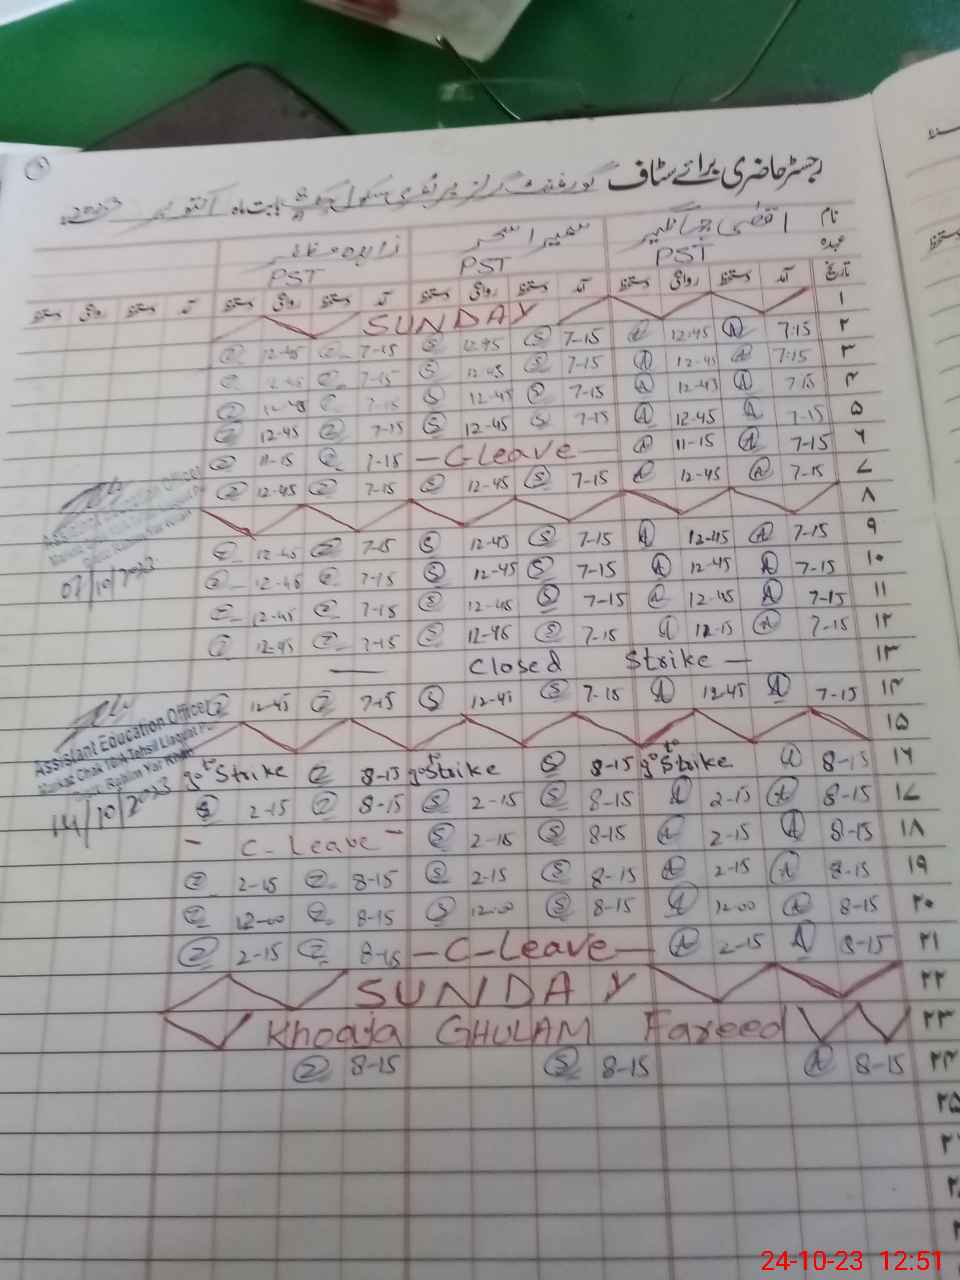 رجسٹر حاضری برائے سٹاف گورنمنٹ گرلز پرائمری سکول بابت ماہ اکتوبر 2023ء
نام اقصیٰ جہانگیر سمیرا
عہدہ PST PST PST
تاریخ آمد دستخط روانگی دستخط آمد دستخط روانگی دستخط آمد دستخط روانگی دستخط آمد دستخط روانگی دستخط
۱ SUNDAY
۲ 7:15 A 12-45 A 7-15 S 12-45 S 7-15 Z 12-45 Z
۳ 7:15 A 12-45 A 7-15 S 12-45 S 7-15 Z 12-45 Z
۴ 7-15 A 12-45 A 7-15 S 12-45 S 7-15 Z 12-45 Z
۵ 7-15 A 12-45 A 7-15 S 12-45 S 7-15 Z 12-45 Z
۶ 7-15 A 11-15 A — C-Leave — 7-15 Z 11-15 Z
۷ 7-15 A 12-45 A 7-15 S 12-45 S 7-15 Z 12-45 Z
Assistant Education Officer
۸
07/10/2023
۹ 7-15 A 12-45 A 7-15 S 12-45 S 7-15 Z 12-45 Z
۱۰ 7-15 A 12-45 A 7-15 S 12-45 S 7-15 Z 12-45 Z
۱۱ 7-15 A 12-45 A 7-15 S 12-45 S 7-15 Z 12-45 Z
۱۲ 7-15 A 12-15 A 7-15 S 12-45 S 7-15 Z 12-45 Z
۱۳ — Closed Strike —
۱۴ 7-15 A 12-45 A 7-15 S 12-45 S 7-15 Z 12-45 Z
۱۵
Assistant Education Officer
Markaz Chak 10/4 Tehsil Liaqat Pur
Distt. Rahim Yar Khan
14/10/2023
۱۶ 8-15 A go to Strike 8-15 S go to Strike 8-15 Z go to Strike
۱۷ 8-15 A 2-15 A 8-15 S 2-15 S 8-15 Z 2-15 Z
۱۸ 8-15 A 2-15 A 8-15 S 2-15 S - C-Leave -
۱۹ 8-15 A 2-15 A 8-15 S 2-15 S 8-15 Z 2-15 Z
۲۰ 8-15 A 12-00 A 8-15 S 12-00 S 8-15 Z 12-00 Z
۲۱ 8-15 A 2-15 A — C-Leave — 8-15 Z 2-15 Z
۲۲ SUNDAY
۲۳ Khoaja GHULAM Fareed
۲۴ 8-15 A 8-15 S 8-15 Z
۲۵
24-10-23 12:51